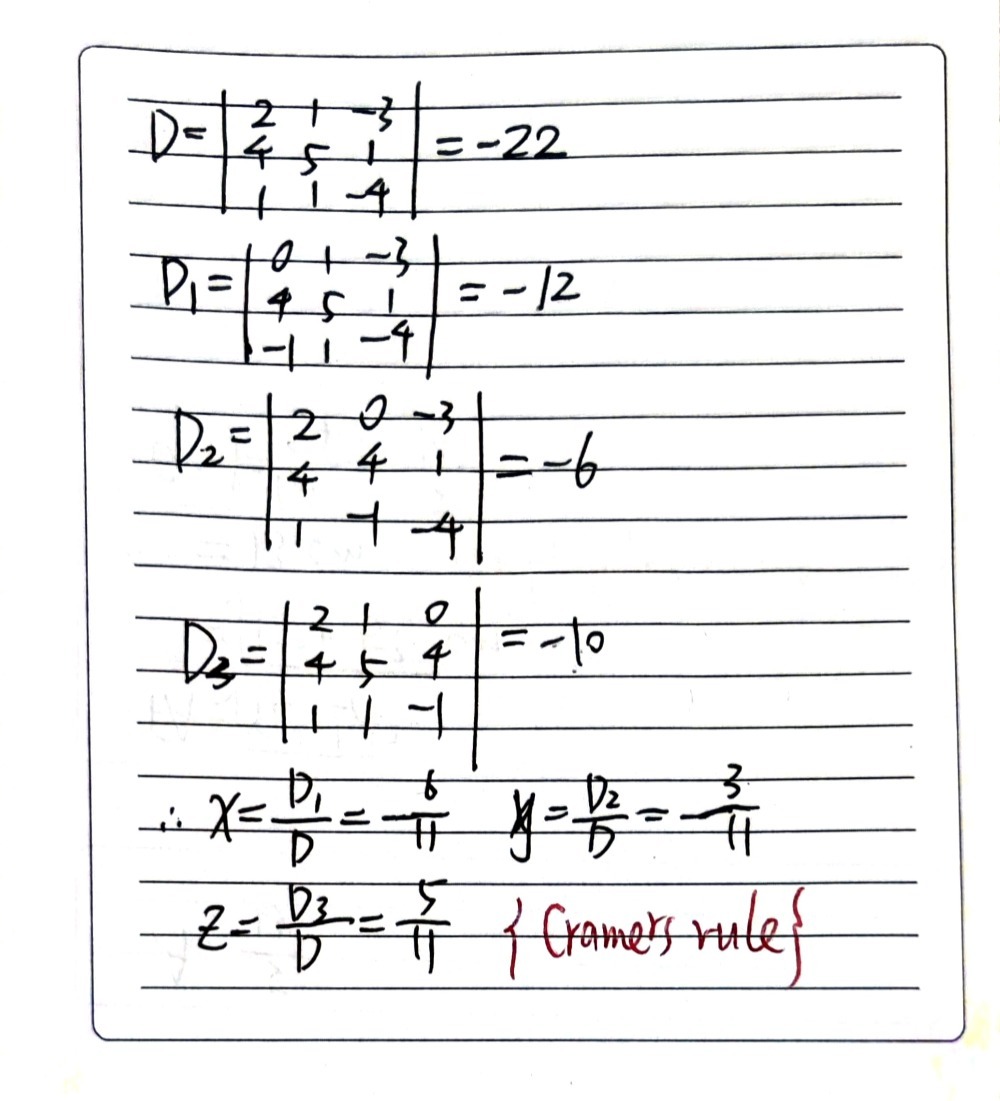 D= | 2 1 -3 |
| 4 5 1 | = -22
| 1 1 -4 |
D₁= | 0 1 -3 |
| 4 5 1 | = -12
| -1 1 -4 |
D₂= | 2 0 -3 |
| 4 4 1 | = -6
| 1 -1 -4 |
D₃= | 2 1 0 |
| 4 5 4 | = -10
| 1 1 -1 |
∴ x = D₁/D = -6/11 y = D₂/D = -3/11
z = D₃/D = 5/11 { Cramers rule }